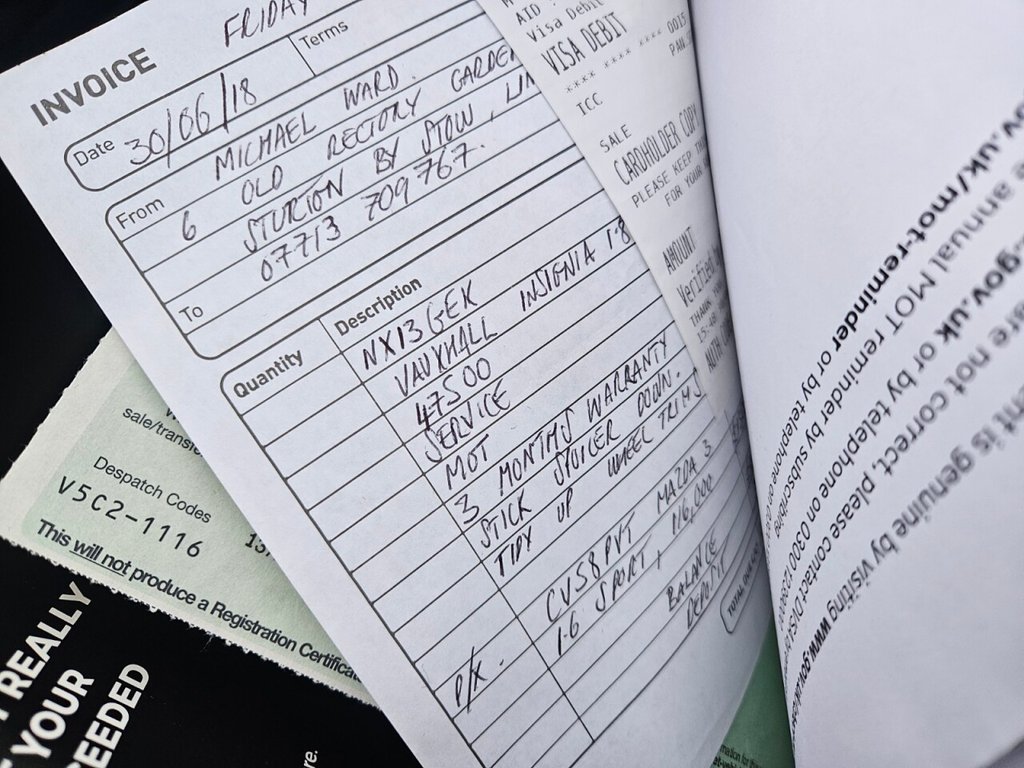 FRIDAY
INVOICE
Terms
Date 30/06/18
From
MICHAEL WARD.
6 OLD RECTORY GARDEN
STURTON BY STOW, LIN
07713 709767.
To
Quantity Description
NX13GEK
VAUXHALL INSIGNIA 1.8
47500
SERVICE
MOT
3 MONTHS WARRANTY
STICK SPOILER DOWN.
TIDY UP WHEEL TRIMS
P/X. CV58PVT MAZDA 3
1.6 SPORT, 116,000
BALANCE
DEPOSIT
AID
Visa Debit
VISA DEBIT
**** **** **** 0015
PAN
ICC
SALE
CARDHOLDER COPY
PLEASE KEEP
FOR YOUR
AMOUNT
Verified
THANK
sale/transfe
Despatch Codes
V5C2-1116
This will not produce a Registration Certifica
REALLY
YOUR
EEDED
re.
ov.uk/mot-reminder or by telephone on
e annual MOT reminder by subscribing
.gov.uk or by telephone on 0300
are not correct, please contact DVSA
nt is genuine by visiting www.gov.uk